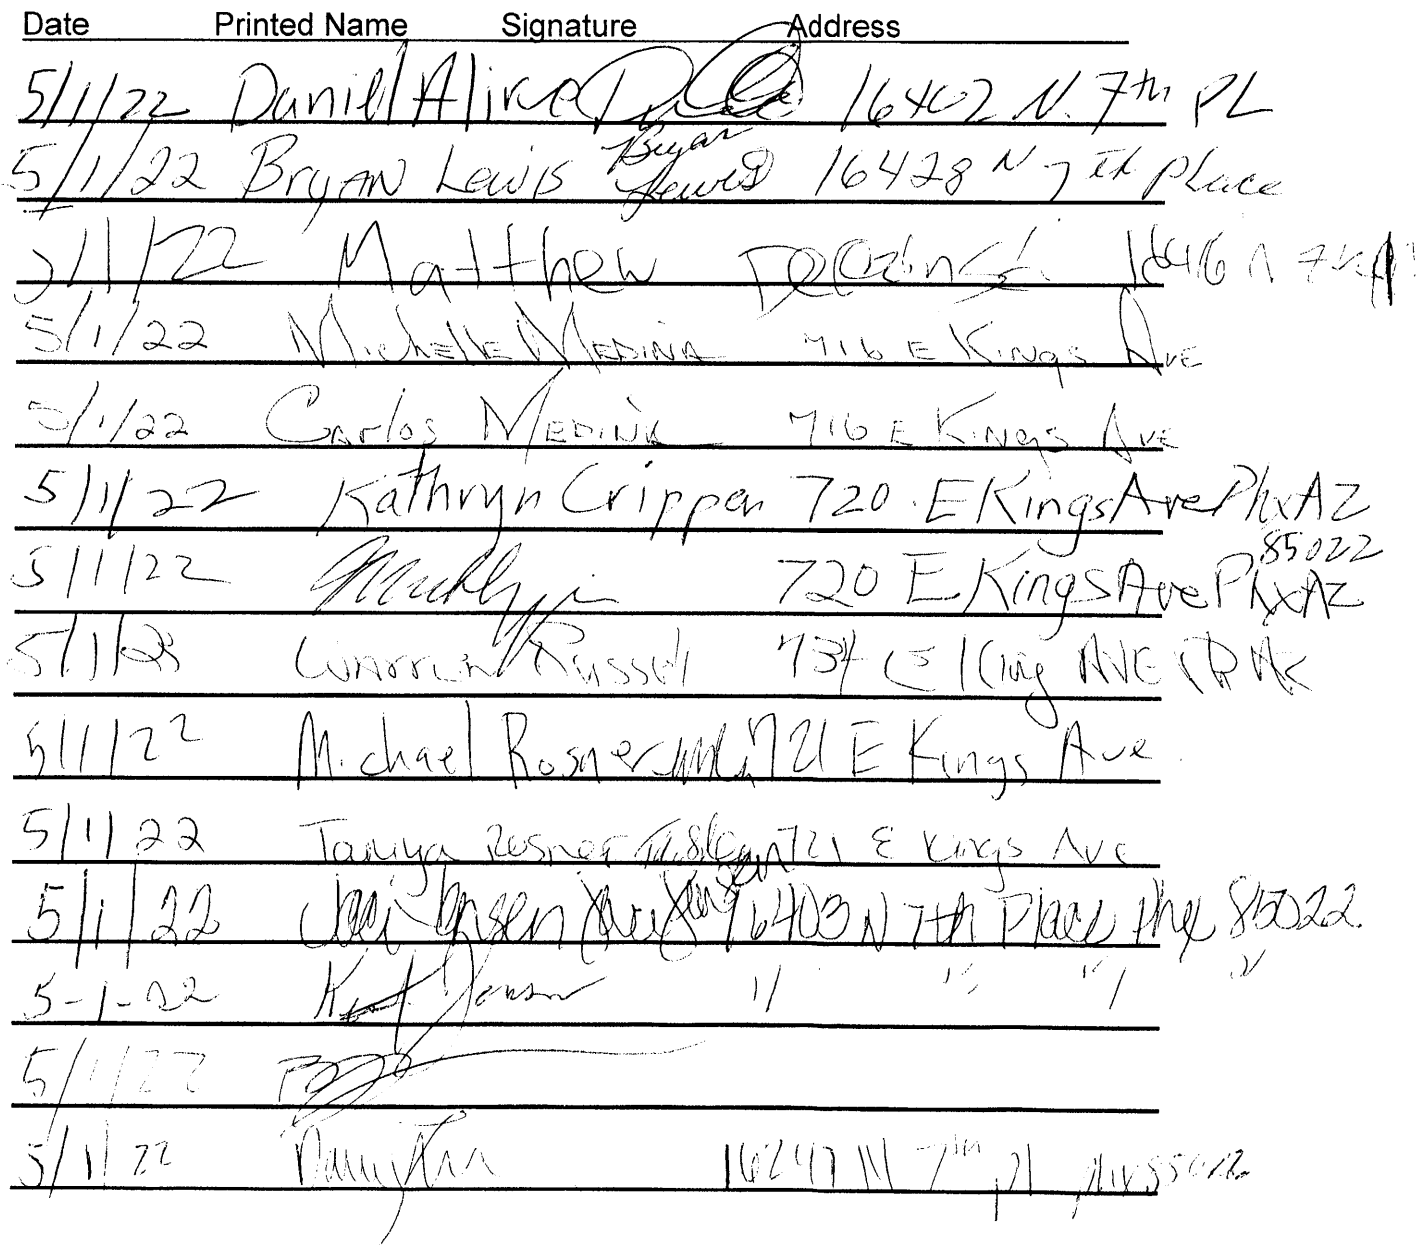 Date Printed Name Signature Address
5/1/22 Daniel Alire 16402 N. 7th PL
5/1/22 Bryan Lewis Bryan Lewis 16428 N 7th Place
5/1/22 Matthew 1646 N 7th Pl
5/1/22 Michelle Medina 716 E Kings Ave
5/1/22 Carlos Medina 716 E Kings Ave
5/1/22 Kathryn Crippen 720 E Kings Ave Phx AZ
85022
5/1/22 720 E Kings Ave Phx AZ
5/1/22 Warren Russell 734 E King AVE
5/1/22 Michael Rosner 721 E Kings Ave
5/1/22 Taniya Rosner 721 E Kings Ave
5/1/22 Jensen 16403 N 7th Place Phx 85022
5-1-22 Jensen " " " "
5/1/22
5/1/22 16247 N 7th Pl Phx 85022